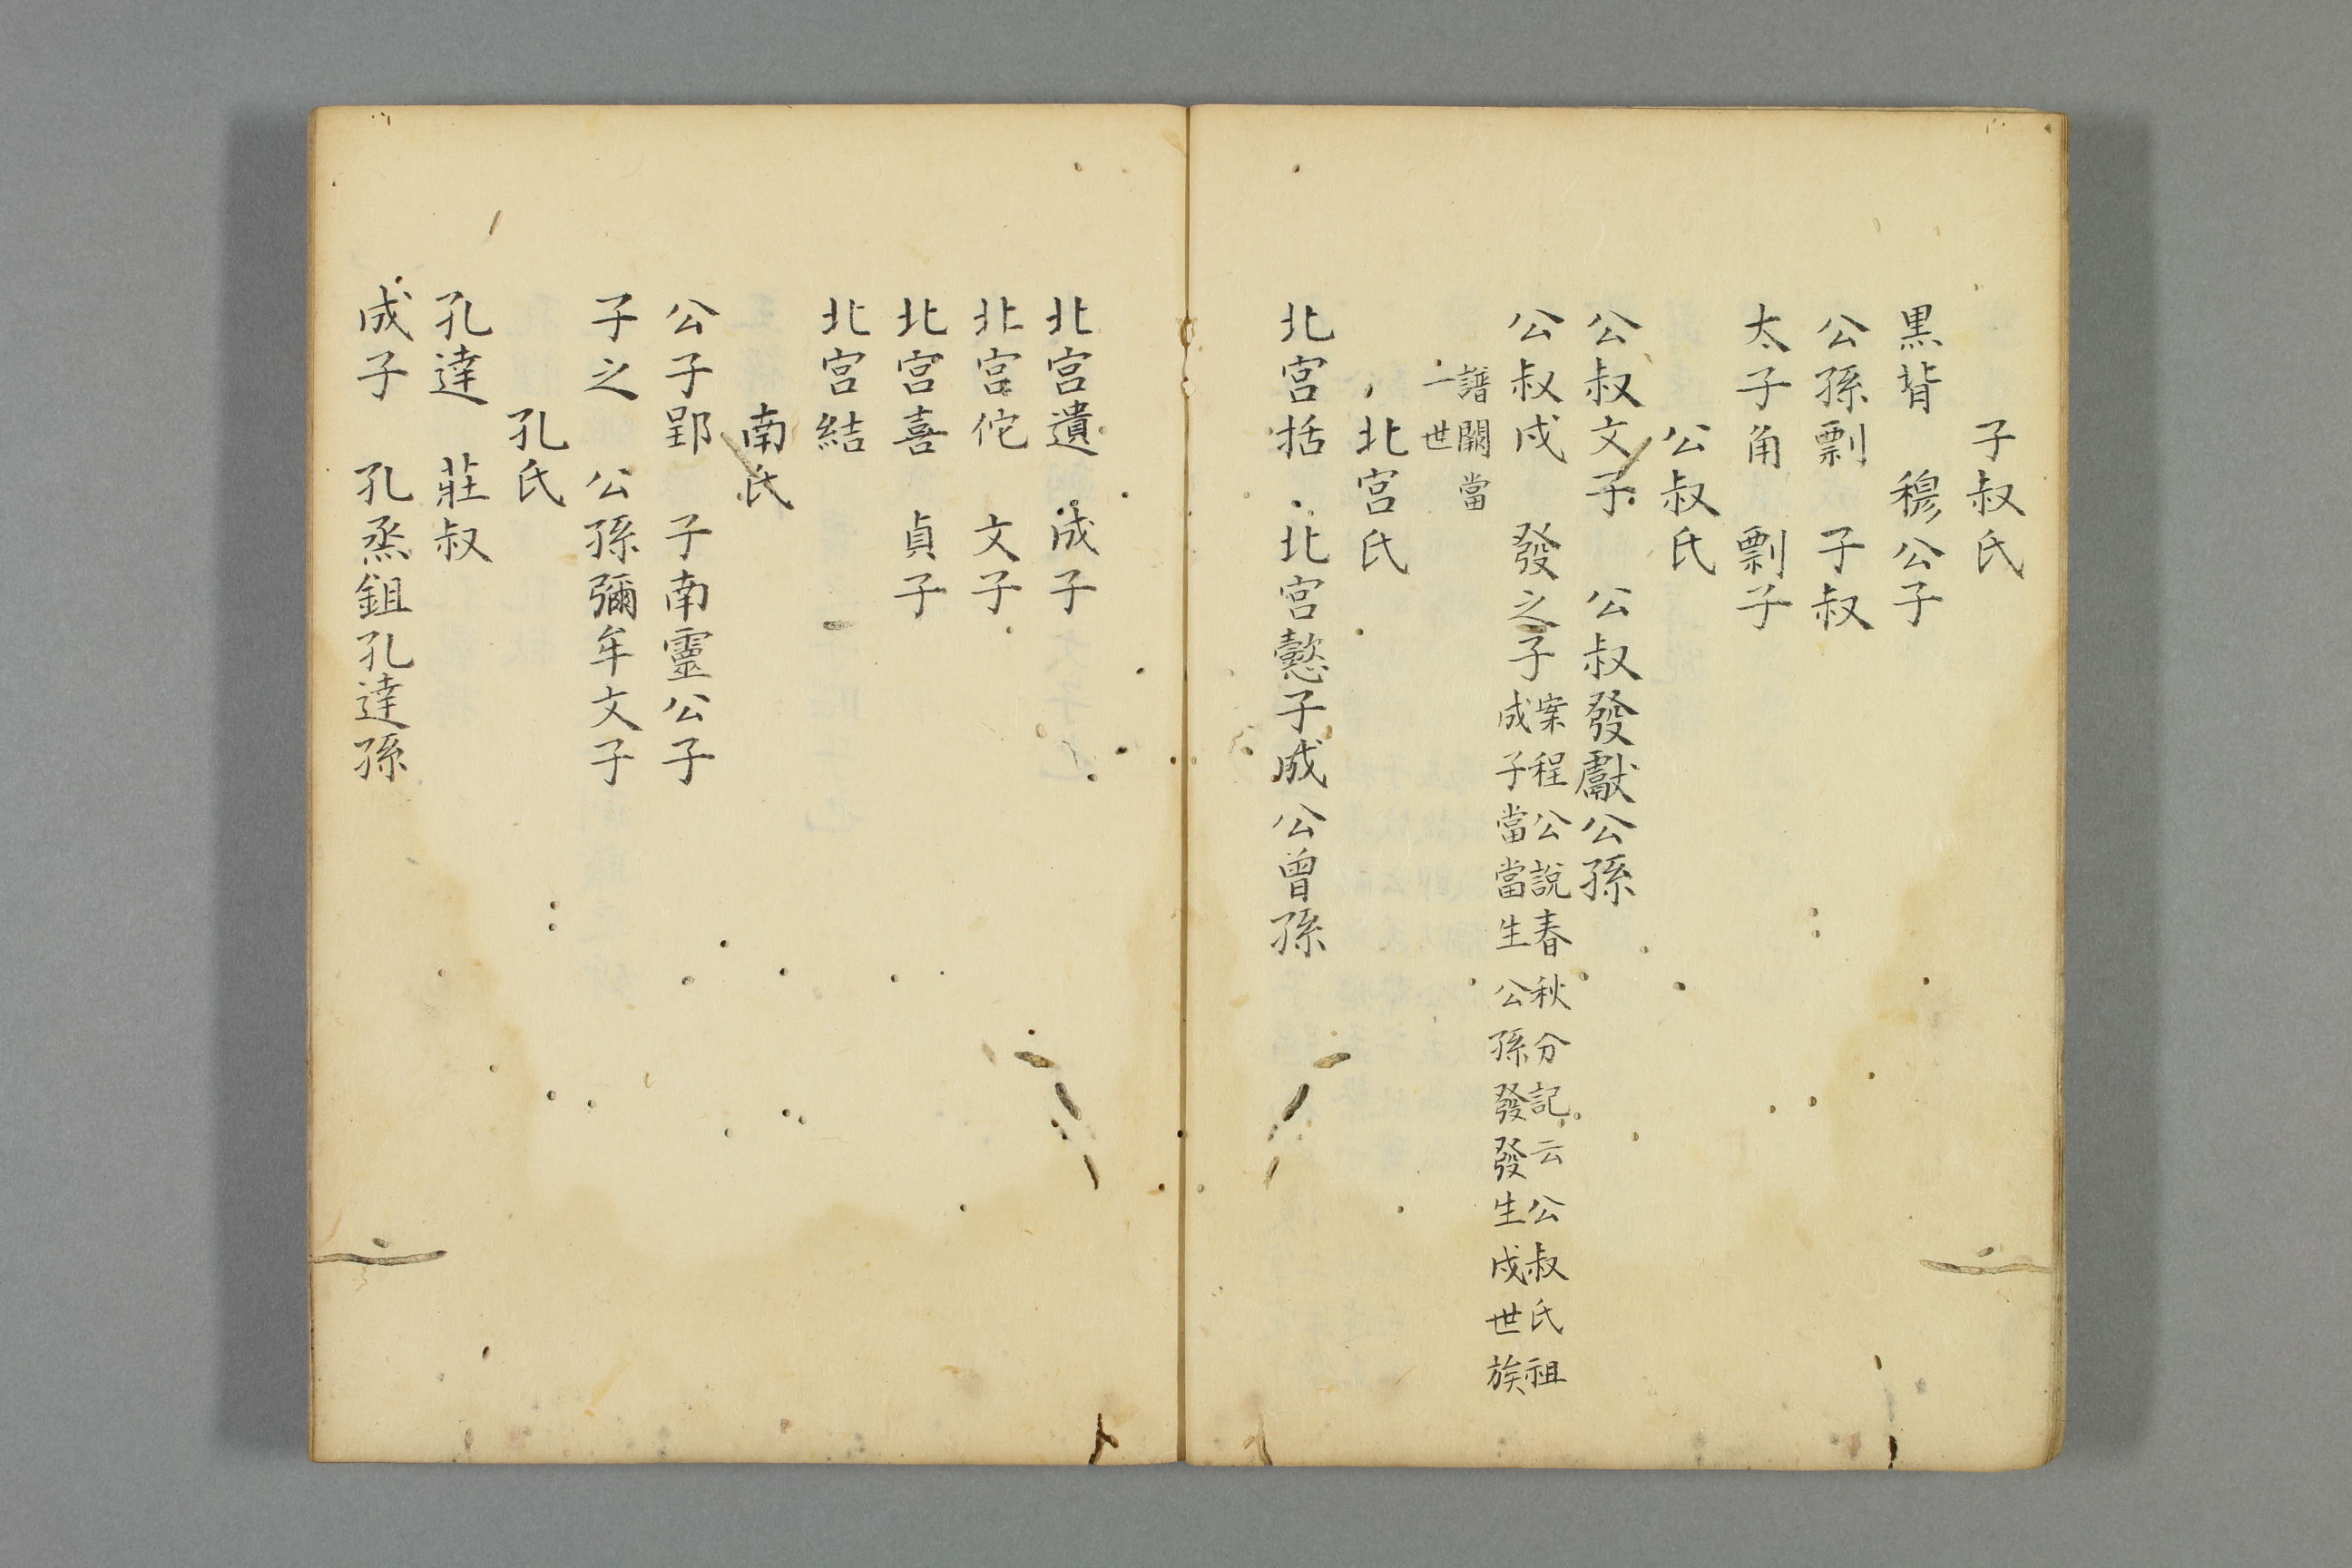 子叔氏
黒背　穆公子
公孫剽　子叔
太子角　剽子
公叔氏
公叔文子　公叔發獻公孫
公叔戍　發之子案程公說春秋分記云公叔氏祖
成子當當生公孫發發生戍世族
譜闕當
一世
北宮氏
北宮括　北宮懿子成公曾孫
北宮遺　成子
北宮佗　文子
北宮喜　貞子
北宮結
南氏
公子郢　子南靈公子
子之　公孫彌牟文子
孔氏
孔達　莊叔
成子　孔烝鉏孔達孫